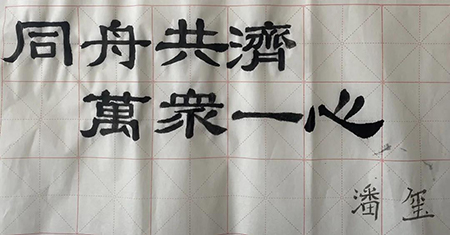 同舟共濟
萬衆一心
潘玺